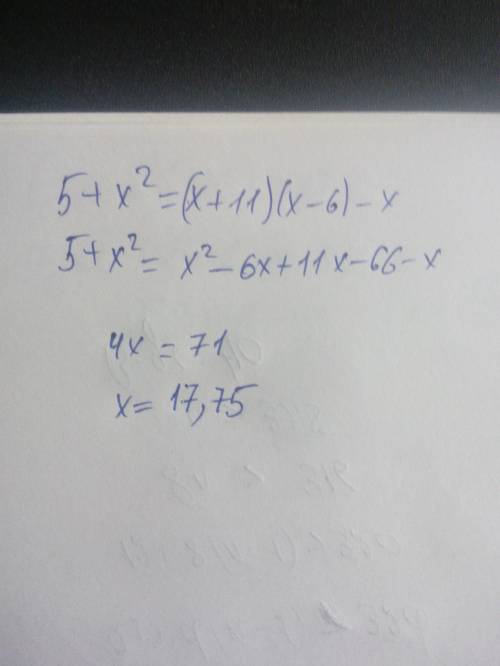 5+x²=(x+11)(x-6)-x
5+x²= x²-6x+11x-66-x
4x = 71
x= 17,75